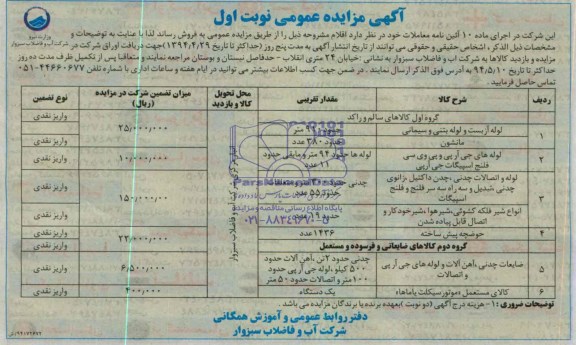 آگهی مزایده عمومی نوبت اول
وزارت نیرو
شرکت آب و فاضلاب سبزوار
این شرکت در اجرای ماده ۱۰ آئین نامه معاملات خود در نظر دارد اقلام مشروحه ذیل را از طریق مزایده عمومی به فروش رساند لذا با عنایت به توضیحات و
مشخصات ذیل الذکر، اشخاص حقیقی و حقوقی می توانند از تاریخ انتشار آگهی به مدت پنج روز (حداکثر تا تاریخ ۱۳۹۴/۴/۲۹) جهت دریافت اوراق شرکت در
مزایده و بازدید کالاها به شرکت آب و فاضلاب سبزوار به نشانی: خیابان ۲۴ متری انقلاب - حدفاصل نیستان و بوستان مراجعه نمایند و متعاقبا پس از تکمیل ظرف مدت ده روز
حداکثر تا تاریخ ۹۴/۵/۱۰ به آدرس فوق الذکر ارسال نمایند. در ضمن جهت کسب اطلاعات بیشتر می توانید در ایام هفته و ساعات اداری با شماره تلفن ۴۴۶۶۰۶۷۷-۰۵۱
تماس حاصل فرمایید.
ردیف شرح کالا مقدار تقریبی محل تحویل کالا و بازدید میزان تضمین شرکت در مزایده (ریال) نوع تضمین
گروه اول کالاهای سالم و راکد
۱ لوله آزبست و لوله بتنی و سیمانی متر ۲۵,۰۰۰,۰۰۰ واریز نقدی
مانشون حدود ۳۸۰ عدد
۲ لوله های جی آر پی و پی وی سی لوله ها حدود ۹۴ متر و مابقی حدود ۱۰,۰۰۰,۰۰۰ واریز نقدی
فلنج اسپیگات جی آرپی ۲۱ عدد
۳ لوله و اتصالات چدنی، چدن داکتیل، زانوی چدنی ۱۵۰,۰۰۰,۰۰۰ واریز نقدی
چدنی، تبدیل و سه راه سه سر فلنج و فلنج حدود ۵۵ عدد
اسپیگات
انواع شیر فلکه کشوئی، شیر هوا، شیر خودکار و حدود ۱۹ عدد
اتصال قابل پیاده شدن
۴ حوضچه پیش ساخته ۱۴۳۶ عدد ۲۲,۰۰۰,۰۰۰ واریز نقدی
گروه دوم کالاهای ضایعاتی و فرسوده و مستعمل
۵ ضایعات چدنی، آهن آلات و لوله های جی آر پی چدنی حدود ۲ تن، آهن آلات حدود ۶,۵۰۰,۰۰۰ واریز نقدی
و اتصالات ۵۰۰ کیلو، لوله جی آر پی حدود
۱۰۰ متر و اتصالات حدود ۵۰ متر
۶ کالای مستعمل (موتورسیکلت یاماها) یک دستگاه ۴۰۰,۰۰۰ واریز نقدی
شرکت آب و فاضلاب سبزوار
پایگاه اطلاع رسانی مناقصه و مزایده
۰۲۱-۸۸۳۴۹۶۷۰-۵
توضیحات ضروری: ۱- هزینه درج آگهی (دو نوبت) بعهده برنده یا برندگان مزایده می باشد.
دفتر روابط عمومی و آموزش همگانی
شرکت آب و فاضلاب سبزوار